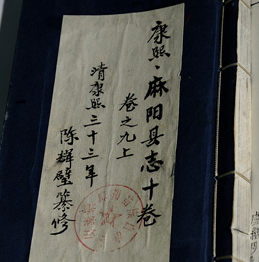 康熙·麻阳县志十卷
卷之九上
清康熙三十三年
陈辉壁纂修